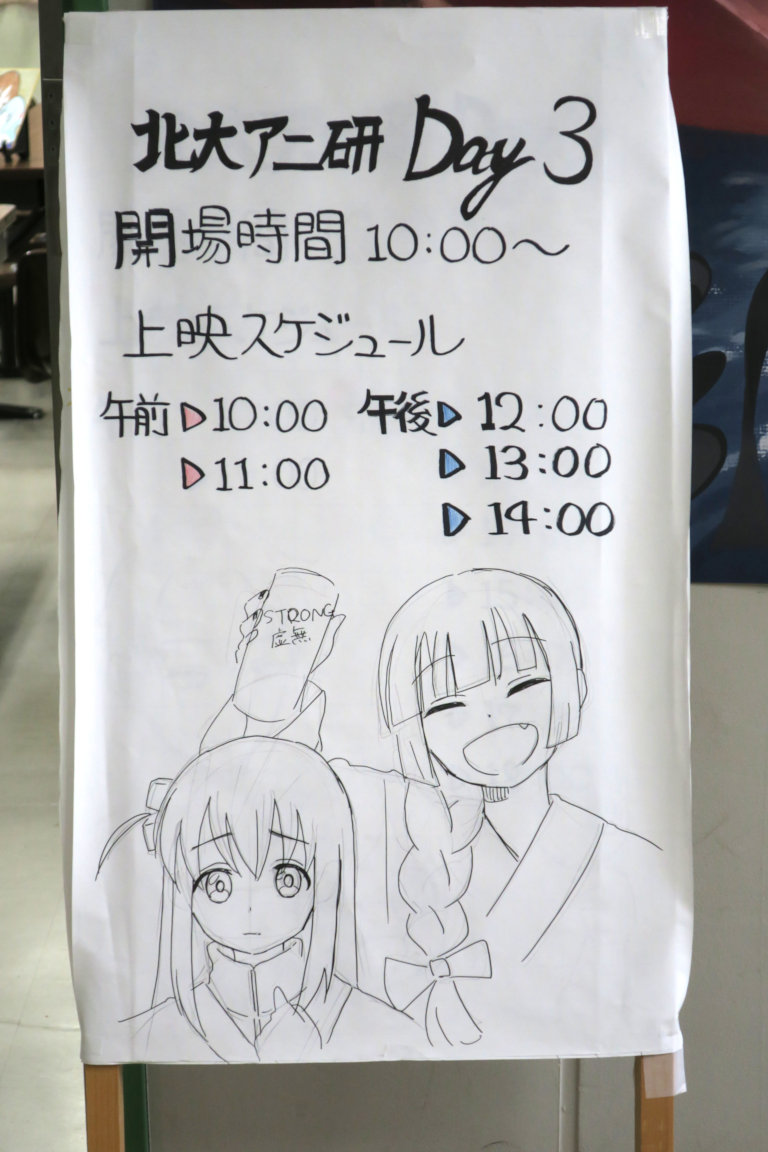 北大アニ研 Day 3
開場時間 10:00〜
上映スケジュール
午前▷10:00 午後▷12:00
▷11:00 ▷13:00
▷14:00
STRONG
虚無